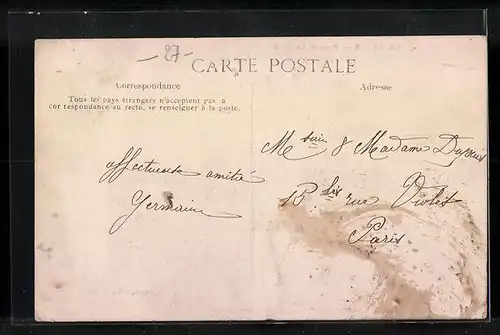 -27-
CARTE POSTALE
Correspondance
Adresse
Tous les pays étrangers n'acceptent pas a
cor respondance au recto, se renseigner à la poste.
affectueuse amitié
Germaine
M sieur & Madame
15 bis rue Violet
Paris